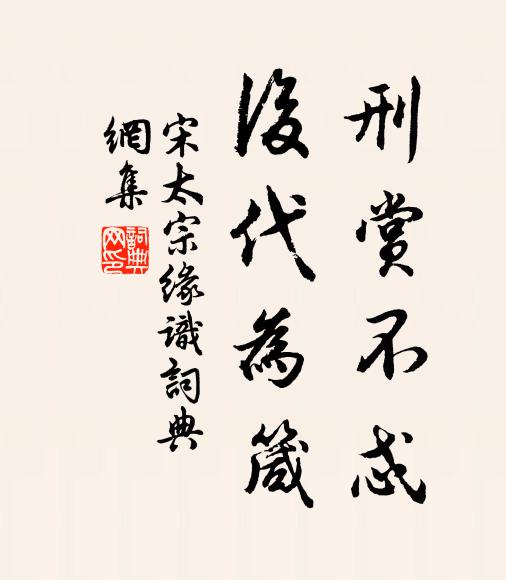 刑賞不忒
後代為箴
宋太宗緣識詞典
網集
詞典
网印